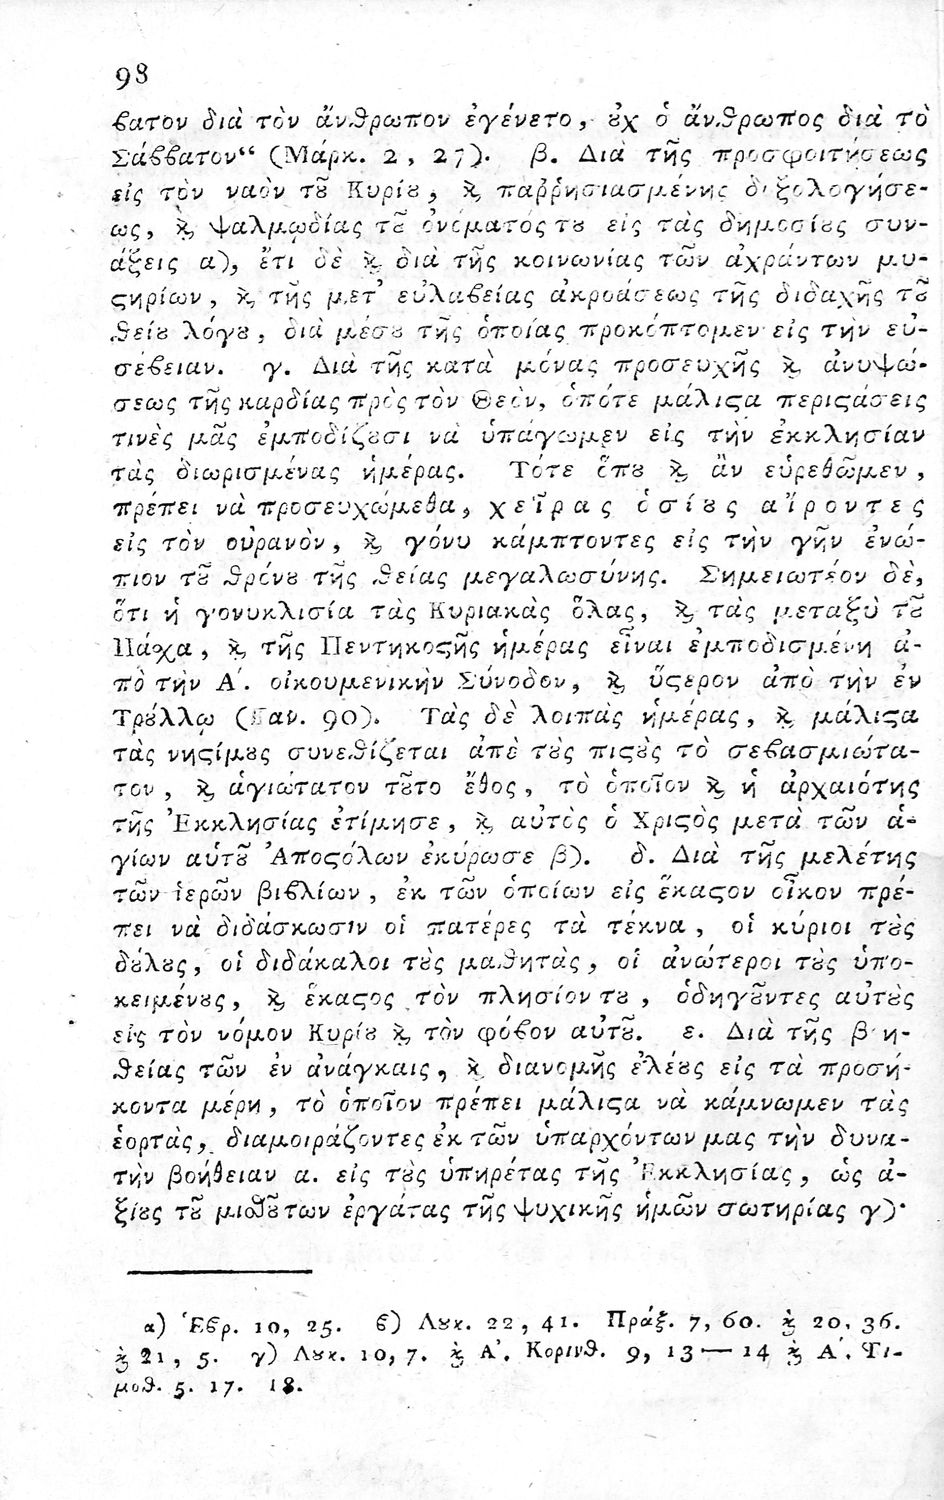 98
ϐατον διὰ τὸν ἄνϑρωπον ἐγένετο, ȣ̓χ ὁ ἄνϑρωπος διὰ τὸ
Σάϐϐατον“ (Μάρκ. 2, 27). β. Διὰ τῆς προσφοιτήσεως
εἰς τὸν ναὸν τȣ͂ Κυρίȣ, ϗ̀ παῤῥησιασμένης δοξολογήσε-
ως, ϗ̀ ψαλμῳδίας τȣ͂ ὀνόματός τȣ εἰς τὰς δημοσίȣς συν-
άξεις α), ἔτι δὲ ϗ̀ διὰ τῆς κοινωνίας τῶν ἀχράντων μυ-
ϛηρίων, ϗ̀ τῆς μετ' εὐλαϐείας ἀκροάσεως τῆς διδαχῆς τȣ͂
ϑείȣ λόγȣ, διὰ μέσȣ τῆς ὁποίας προκόπτομεν εἰς τὴν εὐ-
σέϐειαν. γ. Διὰ τῆς κατὰ μόνας προσευχῆς ϗ̀ ἀνυψώ-
σεως τῆς καρδίας πρὸς τὸν Θεὸν, ὁπότε μάλιϛα περιϛάσεις
τινὲς μᾶς ἐμποδίζȣσι νὰ ὑπάγωμεν εἰς τὴν ἐκκλησίαν
τὰς διωρισμένας ἡμέρας. Τότε ὅπȣ ϗ̀ ἂν εὑρεθῶμεν,
πρέπει νὰ προσευχώμεθα, χεῖρας ὁσίȣς αἴροντες
εἰς τὸν οὐρανὸν, ϗ̀ γόνυ κάμπτοντες εἰς τὴν γῆν ἐνώ-
πιον τȣ͂ ϑρόνȣ τῆς ϑείας μεγαλωσύνης. Σημειωτέον δὲ,
ὅτι ἡ γονυκλισία τὰς Κυριακὰς ὅλας, ϗ̀ τὰς μεταξὺ τȣ͂
Πάχα, ϗ̀ τῆς Πεντηκοϛῆς ἡμέρας εἶναι ἐμποδισμένη ἀ-
πὸ τὴν Α'. οἰκουμενικὴν Σύνοδον, ϗ̀ ὕϛερον ἀπὸ τὴν ἐν
Τρȣ́λλῳ (Καν. 90). Τὰς δὲ λοιπὰς ἡμέρας, ϗ̀ μάλιϛα
τὰς νηϛίμȣς συνεϑίζεται ἀπὸ τȣ̀ς πιϛȣ̀ς τὸ σεϐασμιώτα-
τον, ϗ̀ ἁγιώτατον τȣ͂το ἔθος, τὸ ὁποῖον ϗ̀ ἡ ἀρχαιότης
τῆς Ἐκκλησίας ἐτίμησε, ϗ̀ αὐτὸς ὁ Χριϛὸς μετὰ τῶν ἁ-
γίων αὑτȣ͂ Ἀποϛόλων ἐκύρωσε β). δ. Διὰ τῆς μελέτης
τῶν ἱερῶν βιϐλίων, ἐκ τῶν ὁποίων εἰς ἕκαϛον οἶκον πρέ-
πει νὰ διδάσκωσιν οἱ πατέρες τὰ τέκνα, οἱ κύριοι τȣ̀ς
δȣ́λȣς, οἱ διδάκαλοι τȣ̀ς μαϑητὰς, οἱ ἀνώτεροι τȣ̀ς ὑπο-
κειμένȣς, ϗ̀ ἕκαϛος τὸν πλησίον τȣ, ὁδηγȣ͂ντες αὐτȣ̀ς
εἰς τὸν νόμον Κυρίȣ ϗ̀ τὸν φόϐον αὐτȣ͂. ε. Διὰ τῆς βοη-
ϑείας τῶν ἐν ἀνάγκαις, ϗ̀ διανομῆς ἐλέȣς εἰς τὰ προσή-
κοντα μέρη, τὸ ὁποῖον πρέπει μάλιϛα νὰ κάμνωμεν τὰς
ἑορτὰς, διαμοιράζοντες ἐκ τῶν ὑπαρχόντων μας τὴν δυνα-
τὴν βοήθειαν α. εἰς τȣ̀ς ὑπηρέτας τῆς Ἐκκλησίας, ὡς ἀ-
ξίȣς τȣ͂ μιϑȣ͂ των ἐργάτας τῆς ψυχικῆς ἡμῶν σωτηρίας γ)·
α) Ἑϐρ. 10, 25. ϐ) Λȣκ. 22, 41. Πράξ. 7, 60. ϗ̀ 20, 36.
ϗ̀ 21, 5. γ) Λȣκ. 10, 7. ϗ̀ Α'. Κορινϑ. 9, 13 — 14 ϗ̀ Α'. Τι-
μοϑ. 5. 17. 18.